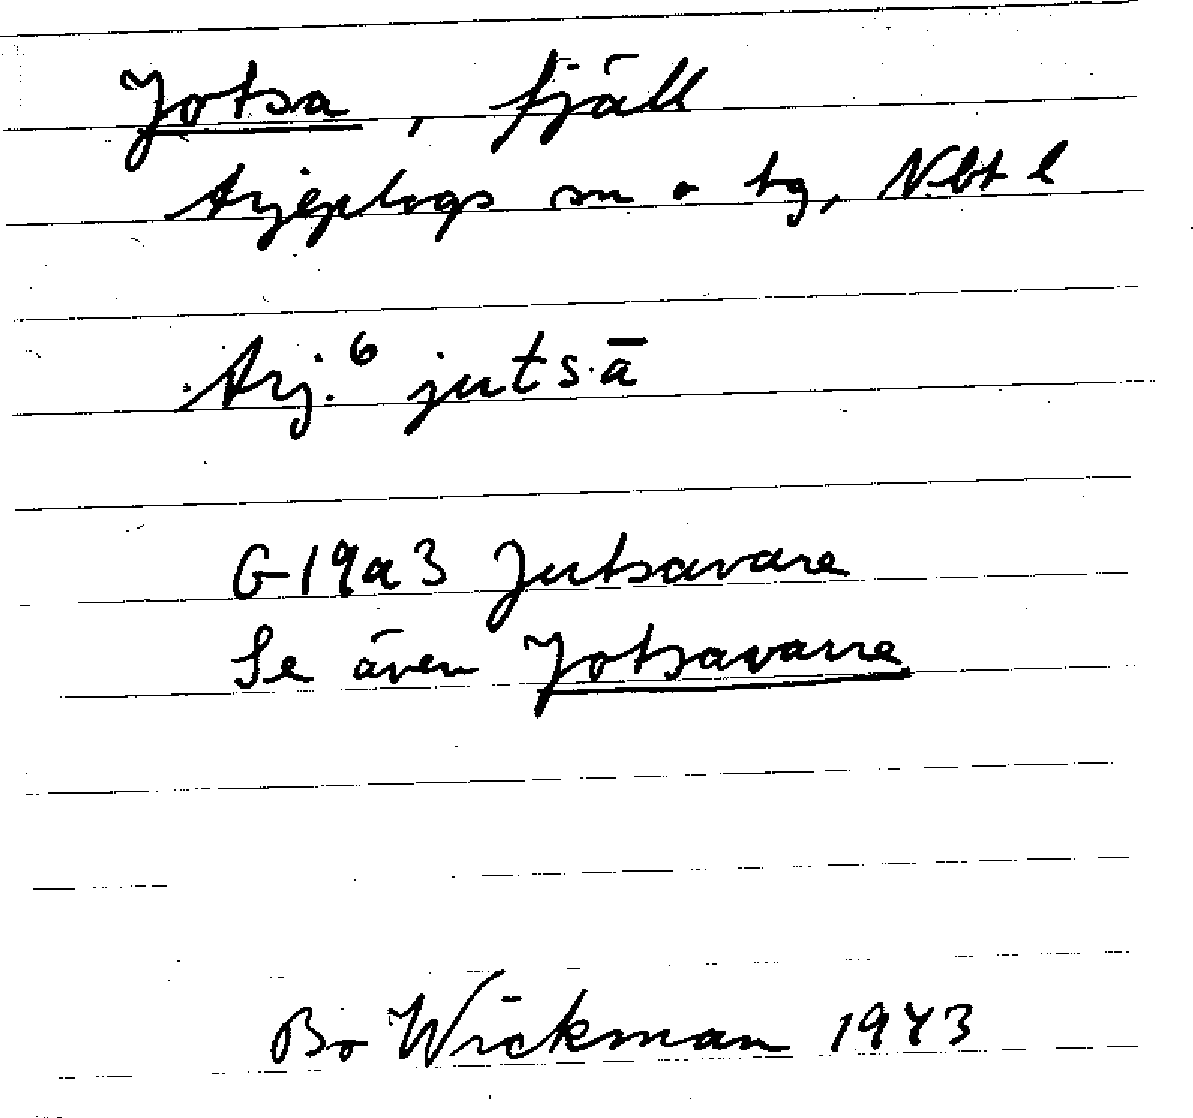 Jotsa, fjäll
Arjeplogs sn o tg, Nbt l
Arj.⁶ juts·ā
G 19a3 Jutsavare
Se även Jotsavarre
Bo Wickman 1943